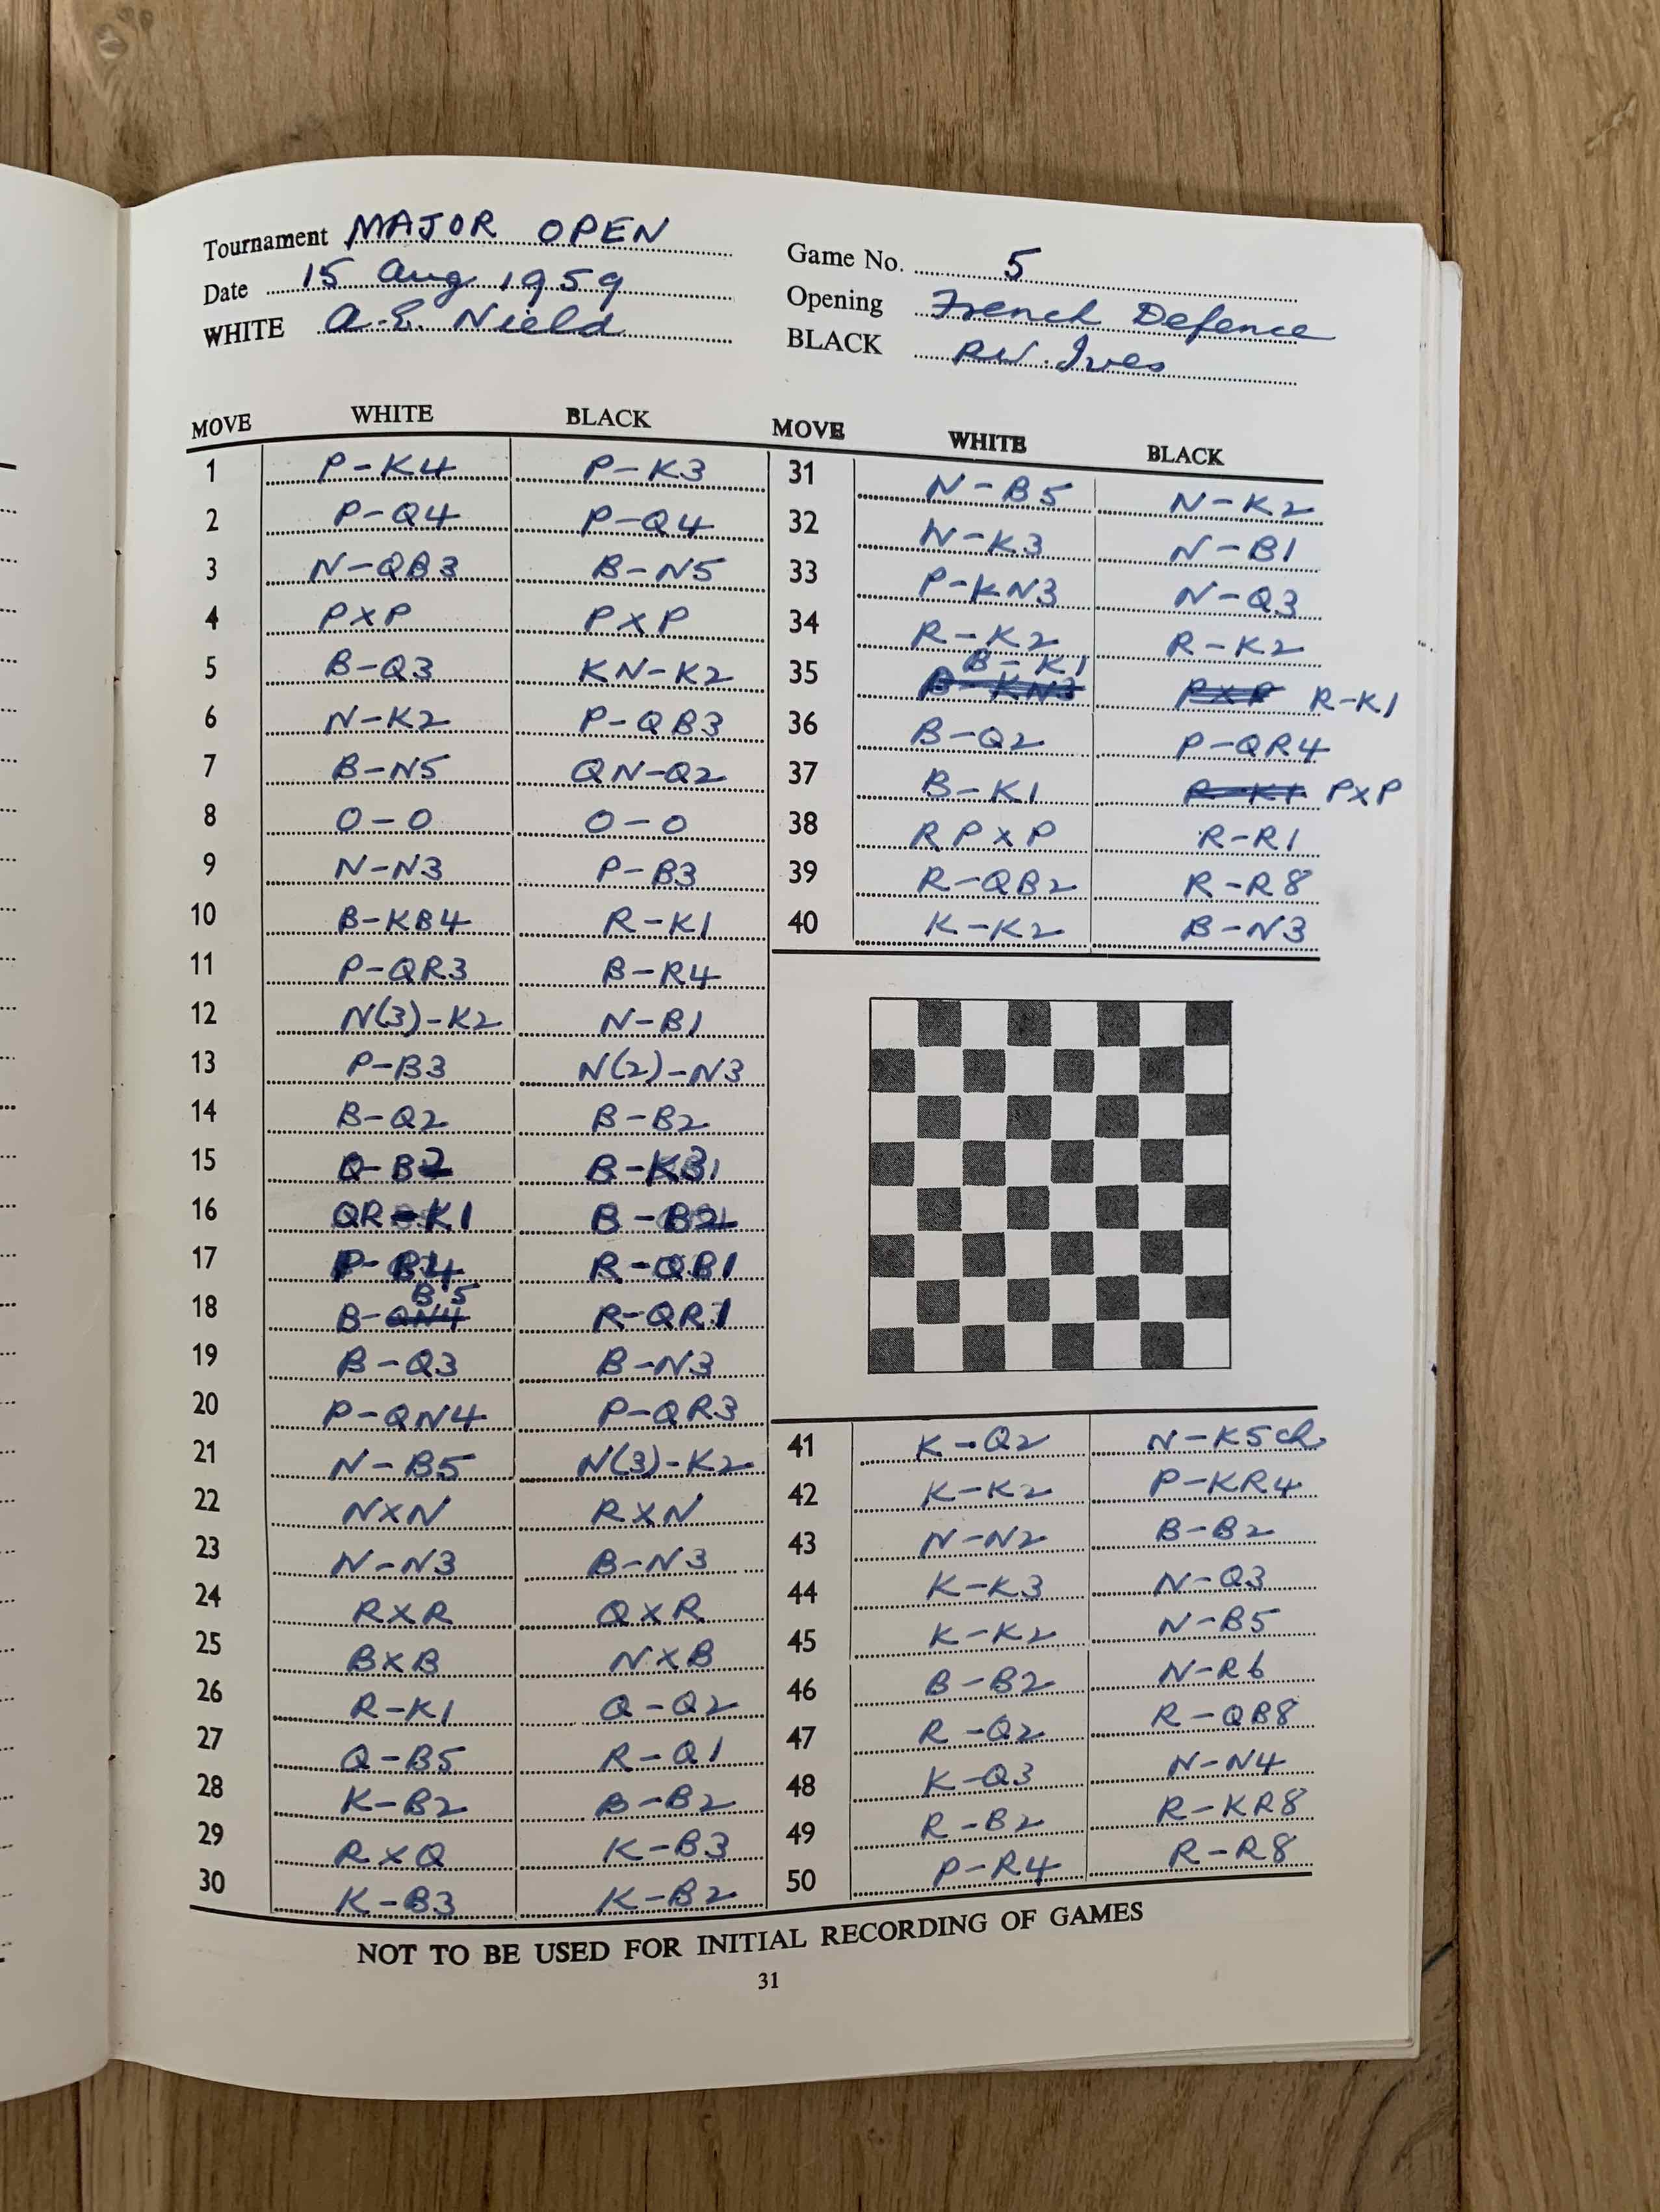 Tournament MAJOR OPEN
Date 15 Aug 1959
WHITE A.E. Nield
Game No. 5
Opening French Defence
BLACK R.W. Ives
MOVE WHITE BLACK
1 P-K4 P-K3
2 P-Q4 P-Q4
3 N-QB3 B-N5
4 PXP PXP
5 B-Q3 KN-K2
6 N-K2 P-QB3
7 B-N5 QN-Q2
8 O-O O-O
9 N-N3 P-B3
10 B-KB4 R-K1
11 P-QR3 B-R4
12 N(3)-K2 N-B1
13 P-B3 N(2)-N3
14 B-Q2 B-B2
15 Q-B2 B-KB1
16 QR-K1 B-B2
17 P-B4 R-QB1
18 B-B5 R-QR1
19 B-Q3 B-N3
20 P-QN4 P-QR3
21 N-B5 N(3)-K2
22 NXN RXN
23 N-N3 B-N3
24 RXR QXR
25 BXB NXB
26 R-K1 Q-Q2
27 Q-B5 R-Q1
28 K-B2 B-B2
29 RXQ K-B3
30 K-B3 K-B2
MOVE WHITE BLACK
31 N-B5 N-K2
32 N-K3 N-B1
33 P-KN3 N-Q3
34 R-K2 R-K2
35 B-K1 R-K1
36 B-Q2 P-QR4
37 B-K1 PXP
38 RPXP R-R1
39 R-QB2 R-R8
40 K-K2 B-N3
41 K-Q2 N-K5ch
42 K-K2 P-KR4
43 N-N2 B-B2
44 K-K3 N-Q3
45 K-K2 N-B5
46 B-B2 N-R6
47 R-Q2 R-QB8
48 K-Q3 N-N4
49 R-B2 R-KR8
50 P-R4 R-R8
NOT TO BE USED FOR INITIAL RECORDING OF GAMES
31